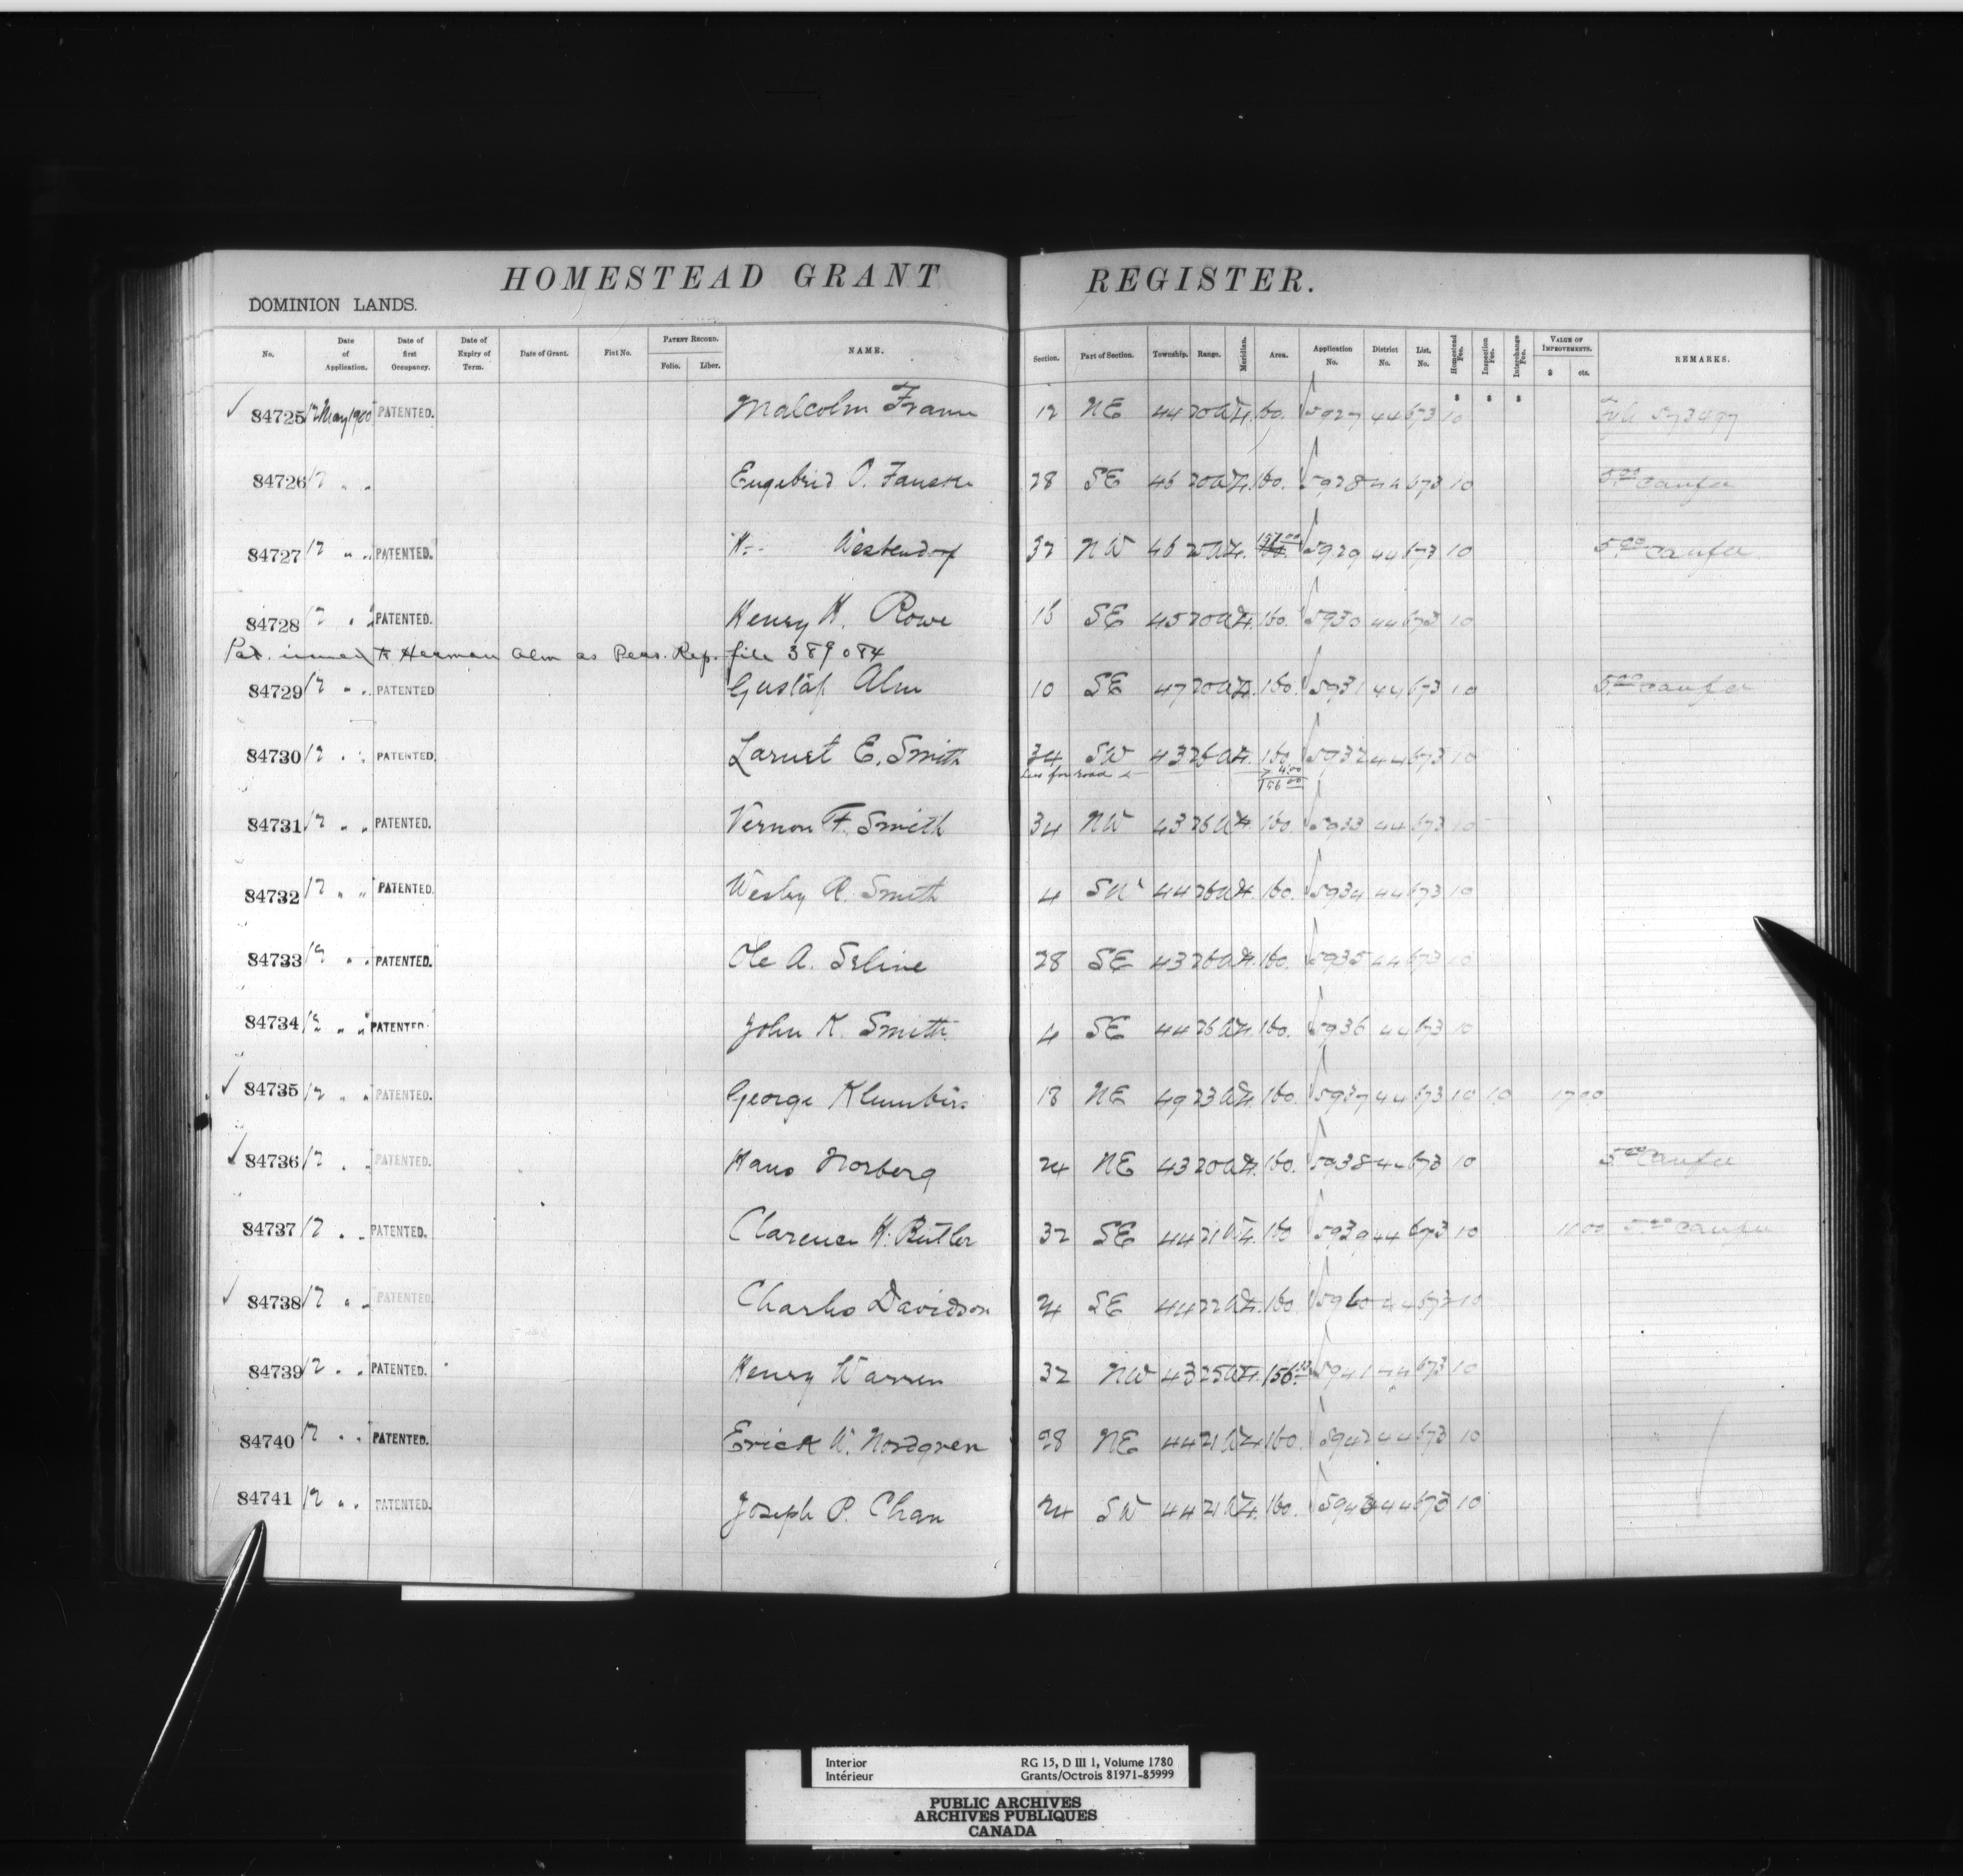 HOMESTEAD GRANT REGISTER.
DOMINION LANDS.
No. Date of Application. Date of first Occupancy. Date of Expiry of Term. Date of Grant. Fiat No. PATENT RECORD. Folio. Liber. NAME. Section. Part of Section. Township. Range. Meridian. Area. Application No. District No. List. No. Homestead Fee. Inspection Fee. Interchange Fee. VALUE OF IMPROVEMENTS. $ cts. REMARKS.
84725 12 May 1900 PATENTED. Malcolm 12 NE 44 20 W4. 160. 5927 44 673 10 573497
84726 12 " " O. 28 SE 46 20 W4. 160. 5928 44 673 10 5.00
84727 12 " " PATENTED. H. Westendorf 32 NW 46 20 W4. 157.00 5929 44 673 10 5.00
84728 12 " " PATENTED. Henry H. Rowe 16 SE 45 20 W4. 160. 5930 44 673 10
Pat. issued to Herman Alm as Pers. Rep. file 389084
84729 12 " " PATENTED Gustaf Alm 10 SE 47 20 W4. 160. 5931 44 673 10 5.00
84730 12 " " PATENTED. E. Smith 34 SW 43 26 W4. 160. 5932 44 673 10
Less for road 4.00
156.00
84731 12 " " PATENTED. Vernon F. Smith 34 NW 43 26 W4. 160. 5933 44 673 10
84732 12 " " PATENTED. Wesley R. Smith 4 SW 44 26 W4. 160. 5934 44 673 10
84733 12 " " PATENTED. Ole A. Seline 28 SE 43 26 W4. 160. 5935 44 673 10
84734 12 " " PATENTED. John K. Smith 4 SE 44 26 W4. 160. 5936 44 673 10
84735 12 " " PATENTED. George 18 NE 49 23 W4. 160. 5937 44 673 10 10
84736 12 " " PATENTED. Hans Norberg 24 NE 43 20 W4. 160. 5938 44 673 10 5.00
84737 12 " " PATENTED. Clarence H. Butler 32 SE 44 21 W4. 160 5939 44 673 10 5.00
84738 12 " " PATENTED. Charles Davidson 24 SE 44 22 W4. 160. 5940 44 673 10
84739 12 " " PATENTED. Henry Warren 32 NW 43 25 W4. 5941 44 673 10
84740 12 " " PATENTED. Erick W. Nordgren 28 NE 44 21 W4. 160. 5942 44 673 10
84741 12 " " PATENTED. Joseph P. Chan 24 SW 44 21 W4. 160. 5943 44 673 10
Interior RG 15, D III 1, Volume 1780
Intérieur Grants/Octrois 81971-85999
PUBLIC ARCHIVES
ARCHIVES PUBLIQUES
CANADA